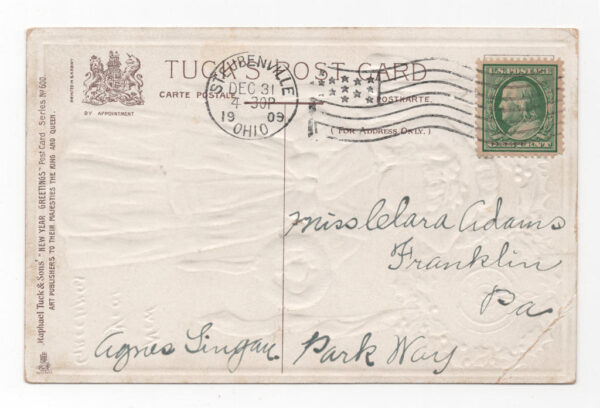 TUCK'S POST CARD
CARTE POSTALE
POSTKARTE.
(FOR ADDRESS ONLY.)
BY APPOINTMENT
Raphael Tuck & Sons' "NEW YEAR GREETINGS" Post Card Series No 600.
ART PUBLISHERS TO THEIR MAJESTIES THE KING AND QUEEN.
STEUBENVILLE
DEC 31
4-30P
1909
OHIO
U.S. POSTAGE
Miss Clara Adams
Franklin
Pa
Agnes Park Way